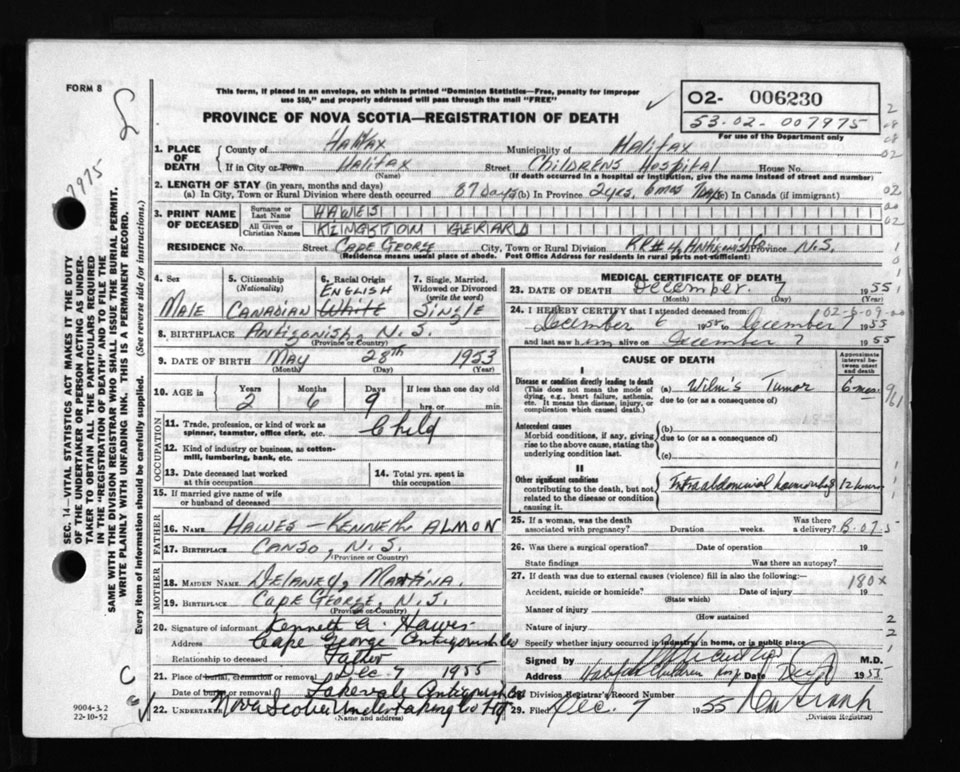 FORM 8
This form, if placed in an envelope, on which is printed "Dominion Statistics—Free, penalty for improper
use $50," and properly addressed will pass through the mail "FREE"
PROVINCE OF NOVA SCOTIA—REGISTRATION OF DEATH
02- 006230
53-02-007975
For use of the Department only
7975
SEC. 14—VITAL STATISTICS ACT MAKES IT THE DUTY
OF THE UNDERTAKER OR PERSON ACTING AS UNDER-
TAKER TO OBTAIN ALL THE PARTICULARS REQUIRED
IN THE "REGISTRATION OF DEATH" AND TO FILE THE
SAME WITH THE DIVISION REGISTRAR WHO SHALL ISSUE THE BURIAL PERMIT.
WRITE PLAINLY WITH UNFADING INK. THIS IS A PERMANENT RECORD.
Every item of information should be carefully supplied. (See reverse side for instructions.)
1. PLACE OF DEATH
County of Halifax Municipality of Halifax
If in City or Town Halifax Street Childrens Hospital House No.
(Name) (If death occurred in a hospital or institution, give the name instead of street and number)
2. LENGTH OF STAY (in years, months and days)
(a) In City, Town or Rural Division where death occurred 87 days (b) In Province 2 yrs, 6 mos (c) In Canada (if immigrant)
3. PRINT NAME OF DECEASED
Surname or Last Name HAWES
All Given or Christian Names KINGSTON GERARD
RESIDENCE No. Street Cape George City, Town or Rural Division RR#4, Antigonish Province N.S.
(Residence means usual place of abode. Post Office Address for residents in rural parts not sufficient)
4. Sex Male
5. Citizenship (Nationality) Canadian
6. Racial Origin ENGLISH White
7. Single, Married, Widowed or Divorced (write the word) Single
8. BIRTHPLACE Antigonish, N.S.
(Province or Country)
9. DATE OF BIRTH May 28th 1953
(Month) (Day) (Year)
10. AGE in Years 2 Months 6 Days 9 If less than one day old hrs. or min.
OCCUPATION
11. Trade, profession, or kind of work as spinner, teamster, office clerk, etc. Child
12. Kind of industry or business, as cotton-mill, lumbering, bank, etc.
13. Date deceased last worked at this occupation
14. Total yrs. spent in this occupation
15. If married give name of wife or husband of deceased
FATHER
16. NAME HAWES - KENNETH ALMON
17. BIRTHPLACE CANSO, N.S.
(Province or Country)
MOTHER
18. MAIDEN NAME Delaney, Martina.
19. BIRTHPLACE Cape George, N.S.
(Province or Country)
20. Signature of informant Kenneth A. Hawes
Address Cape George Antigonish Co
Relationship to deceased Father
21. Place of burial, cremation or removal Dec 7 1955
Date of burial or removal Lakevale Antigonish Co
22. UNDERTAKER Nova Scotia Undertaking Co Ltd
(Name and address)
9004-3.2
22-10-52
MEDICAL CERTIFICATE OF DEATH
23. DATE OF DEATH December 7 1955
(Month) (Day) (Year)
24. I HEREBY CERTIFY that I attended deceased from:
December 6 1955 to December 7 1955
and last saw him alive on December 7 1955
CAUSE OF DEATH
Approximate interval between onset and death
I
Disease or condition directly leading to death
(This does not mean the mode of dying, e.g., heart failure, asthenia, etc. It means the disease, injury, or complication which caused death.)
(a) Wilm's Tumor 6 mos.
due to (or as a consequence of)
Antecedent causes
Morbid conditions, if any, giving rise to the above cause, stating the underlying condition last.
(b)
due to (or as a consequence of)
(c)
II
Other significant conditions
contributing to the death, but not related to the disease or condition causing it.
Intraabdominal hemorrhage 12 hours
25. If a woman, was the death associated with pregnancy? Duration weeks. Was there a delivery?
26. Was there a surgical operation? Date of operation 19
State findings Was there an autopsy?
27. If death was due to external causes (violence) fill in also the following:—
180x
Accident, suicide or homicide? Date of injury 19
(State which)
Manner of injury
(How sustained
Nature of injury
Specify whether injury occurred in industry, in home, or in public place
Signed by M.D.
Address Halifax Children Hosp Date Dec 7 1955
28. Division Registrar's Record Number
29. Filed Dec. 7 1955
(Division Registrar)